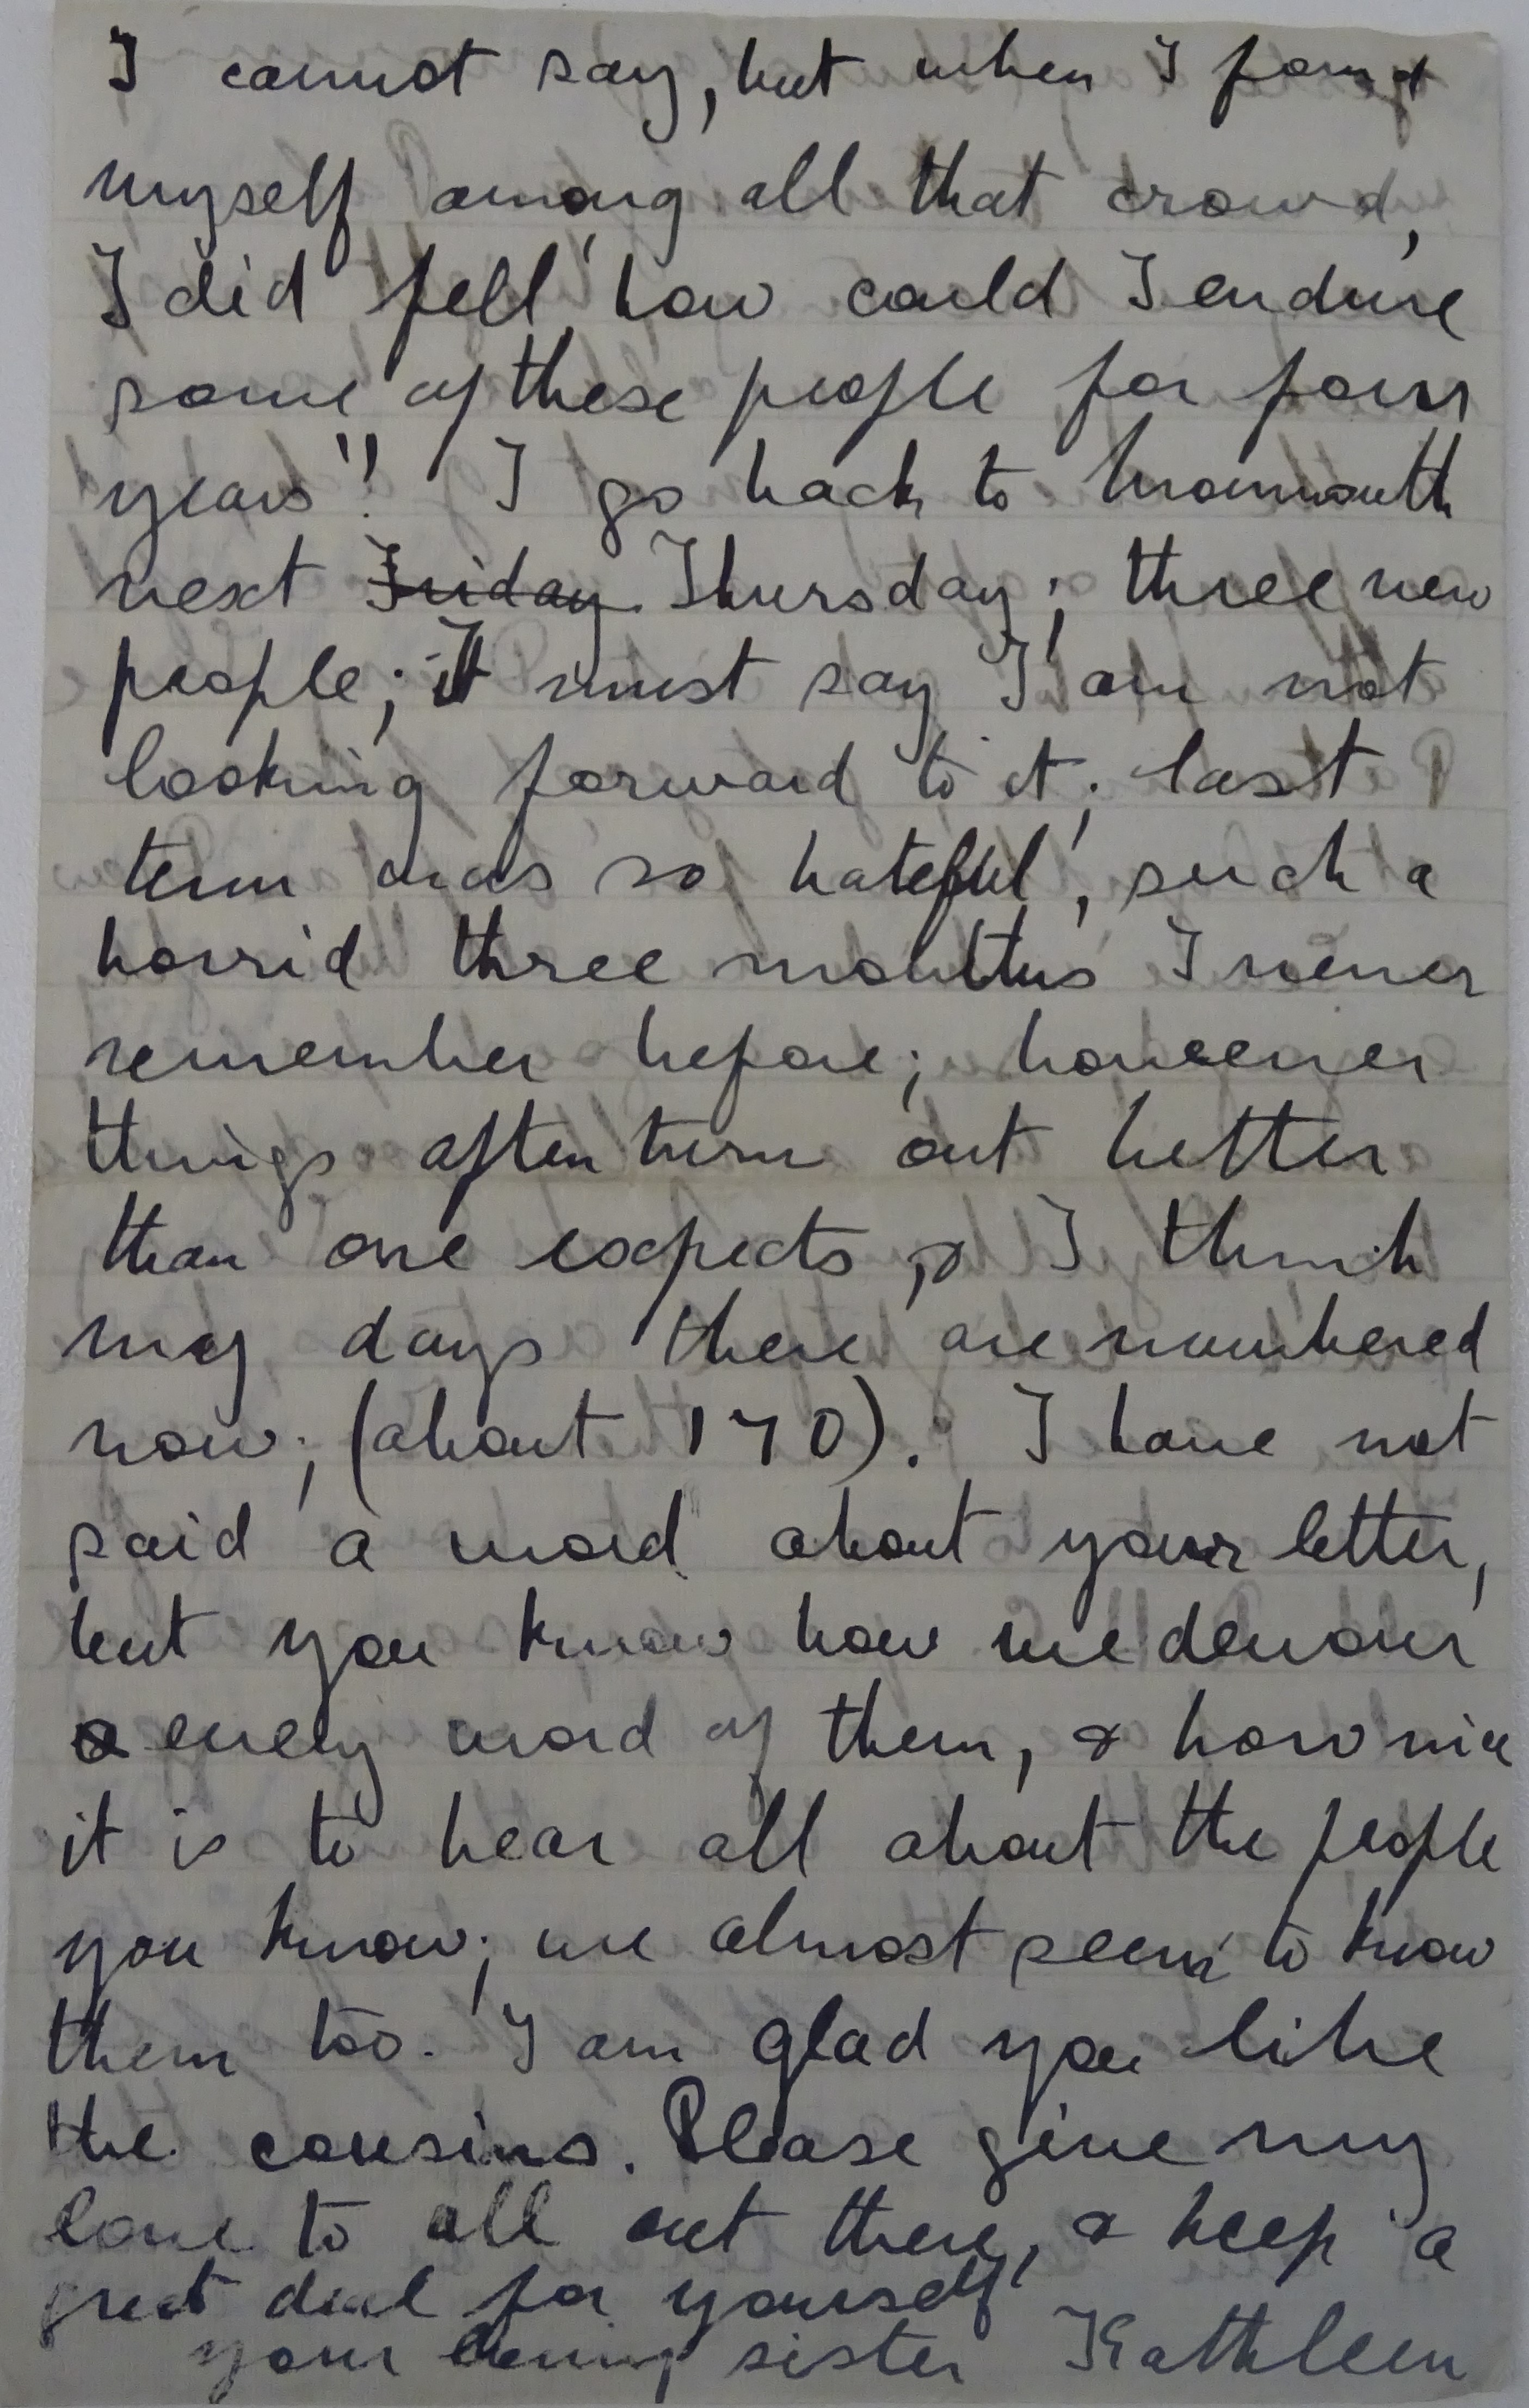 I cannot say, but when I found
myself among all that crowd,
I did fell, "how could I endure
some of these people for four
years"! I go back to Monmouth
next ~~Friday~~ Thursday; three new
people; I must say I am not
looking forward to it; last
term was so hateful, such a
horrid three months I never
remember before; however
things often turn out better
than one expects, & I think
my days there are numbered
now; (about 170). I have not
said a word about your letter,
but you know how we devour
every word of them, & how nice
it is to hear all about the people
you know; we almost seem to know
them too. I am glad you like
the cousins. Please give my
love to all out there, & keep a
great deal for yourself
your loving sister Kathleen